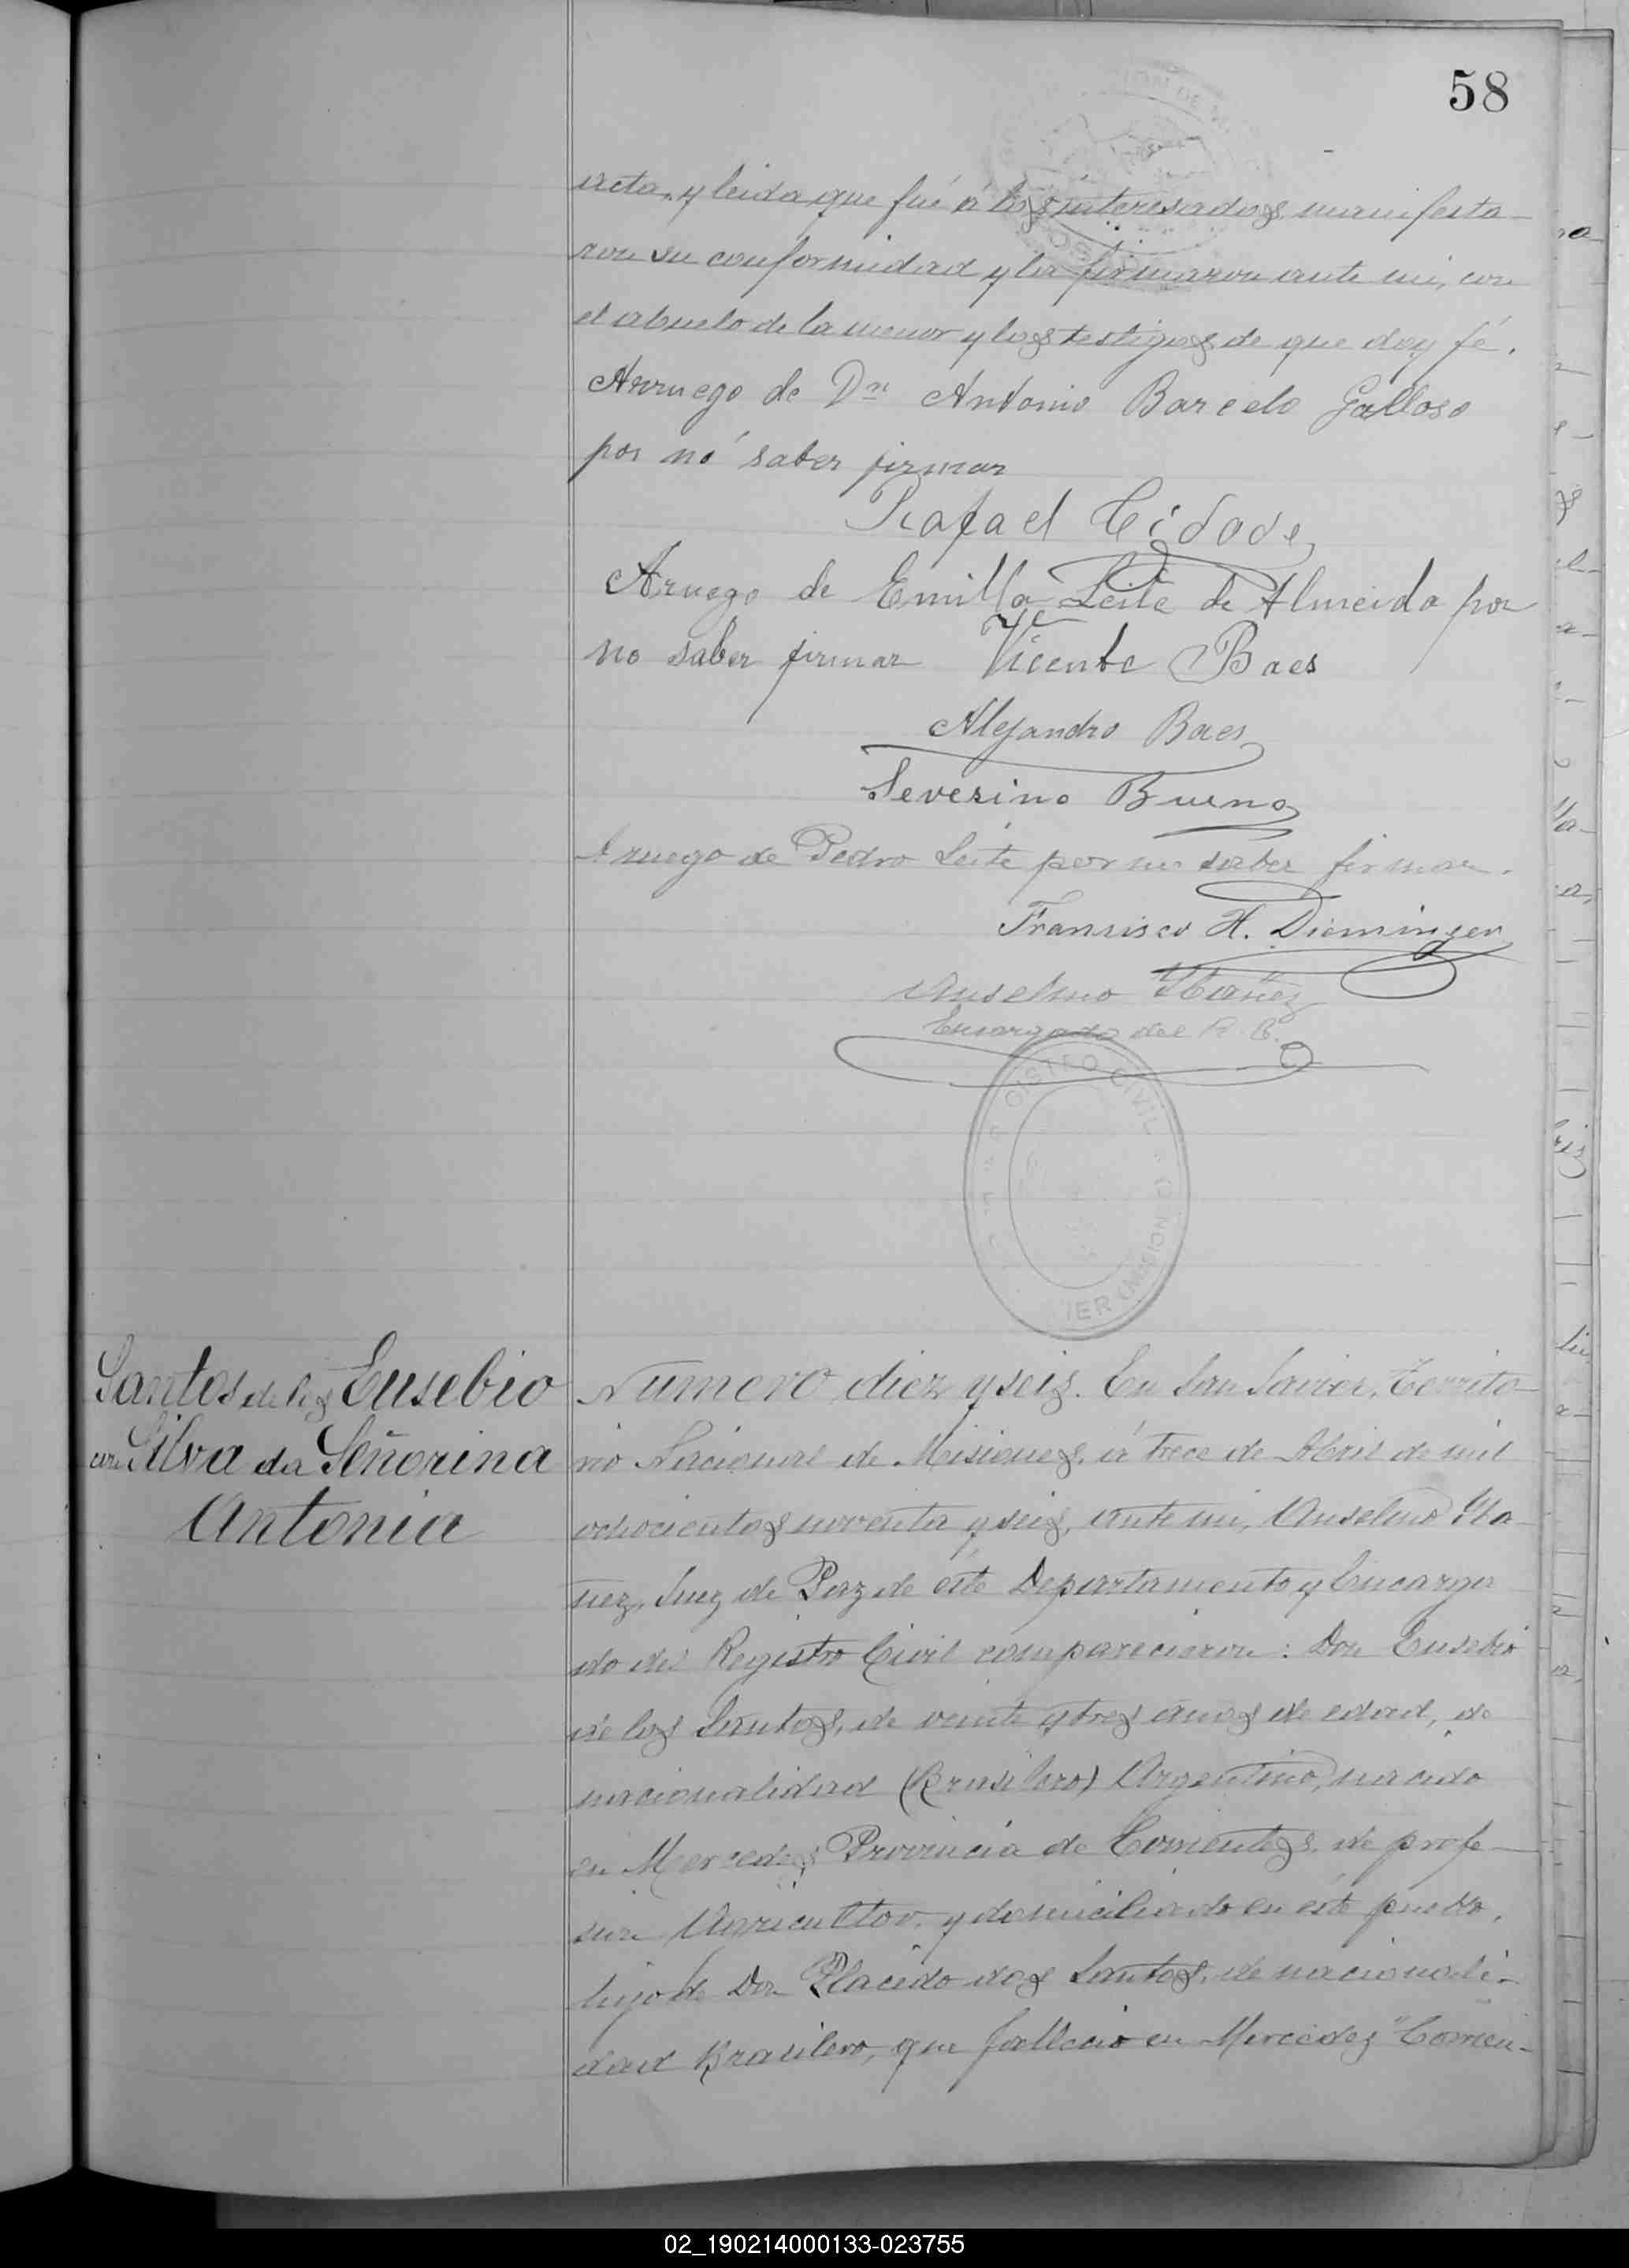 58
acta, y leida que fué á los interesados, manifesta-
ron su conformidad y la firmaron ante mi, con
el abuelo de la menor y los testigos de que doy fé.
Arruego de Dn Antonio Barcelo Galloso
por nó saber firmar
Rafael Cidade
Aruego de Emilla Leite de Almeida por
no saber firmar Vicente Baes
Alejandro Baes
Severino Bueno
A ruego de Pedro Leite por no saber firmar.
Fransisco H. Dieminger
Anselmo Ibañez
Encargado del R. C.
REGISTRO CIVIL
Santos de los Eusebio
con Silva da Señorina
Antonia
Numero diez y seis. En San Javier, Territo-
rio Nacional de Misiones, á trece de Abril de mil
ochocientos noventa y seis, ante mi, Anselmo Iba-
ñez, Juez de Paz de éste Departamento y Encarga
do del Registro Civil comparecieron: Don Eusebio
de los Santos, de veinte y tres años de edad, de
nacionalidad (Brasilero) Argentino, nacido
en Mercedes Provincia de Corrientes, de profe-
sion Agricultor, y domiciliado en éste pueblo,
hijo de Don Placido dos Santos, de nacionali-
dad Brasilero, que falleció en Mercedes "Corrien-
02_190214000133-023755